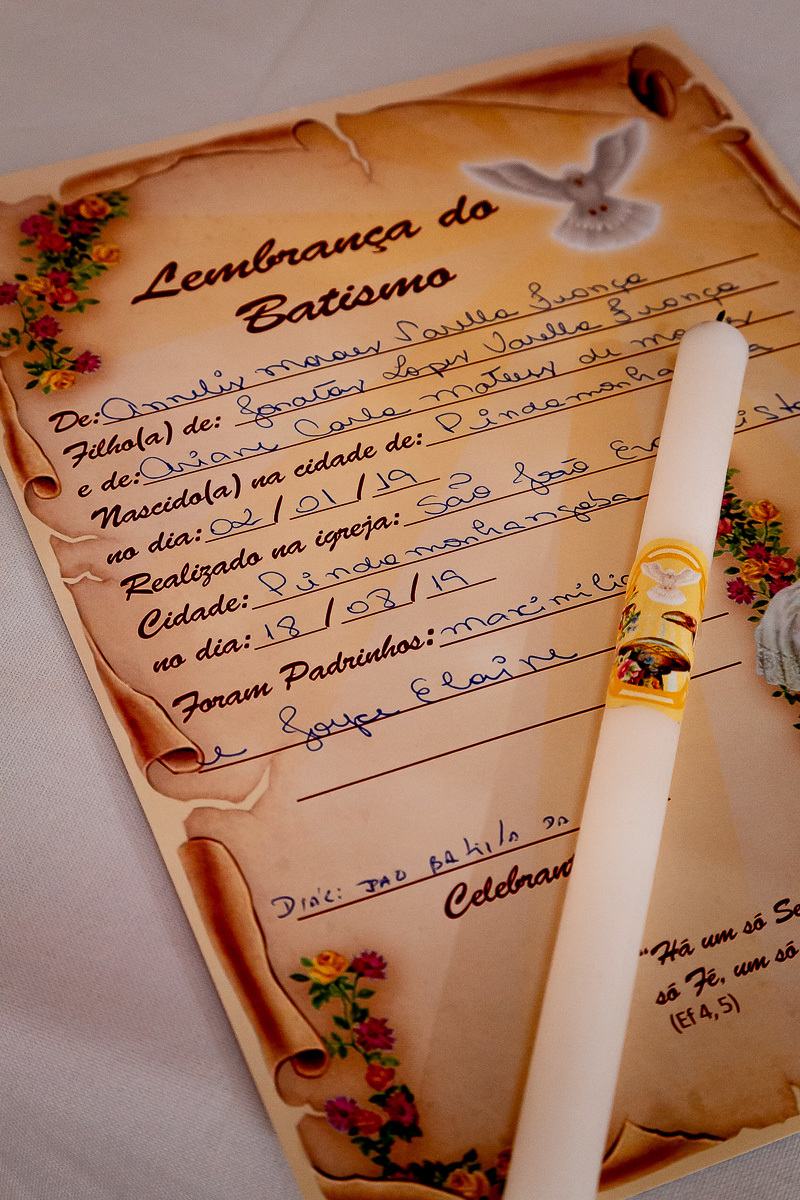 Lembrança do
Batismo
De: Annelix Moraes Varella França
Filho(a) de: Jonatas Lopes Varella França
e de: Ariane Carla Mateus de
Nascido(a) na cidade de:
no dia: 02 / 01 / 19
Realizado na igreja: São João
Cidade: Pindamonhangaba
no dia: 18 / 08 / 19
Foram Padrinhos:
e Joyce Elaine
BATISTA DA
"Há um só
só Fé, um só
(Ef 4, 5)